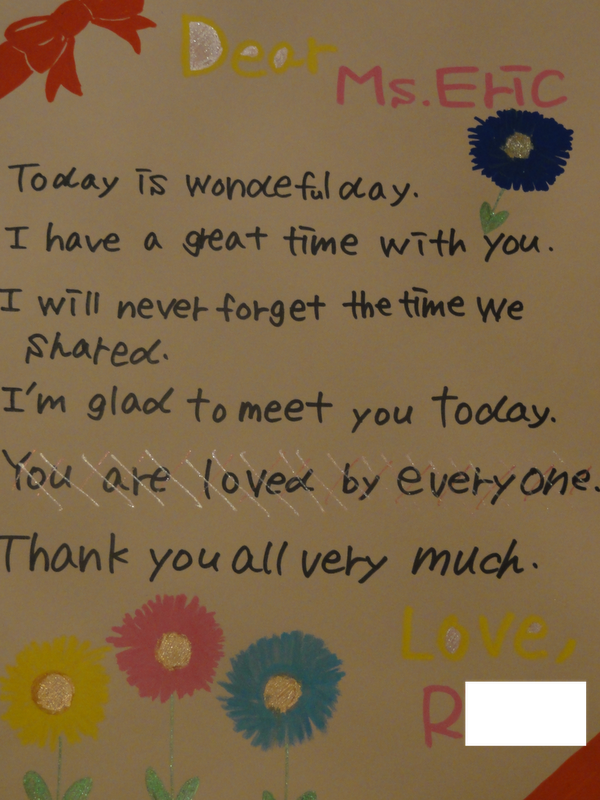 Dear
Ms. Eric
Today is wondefulday.
I have a great time with you.
I will never forget the time we
shared.
I'm glad to meet you today.
You are loved by everyone.
Thank you all very much.
Love,
R